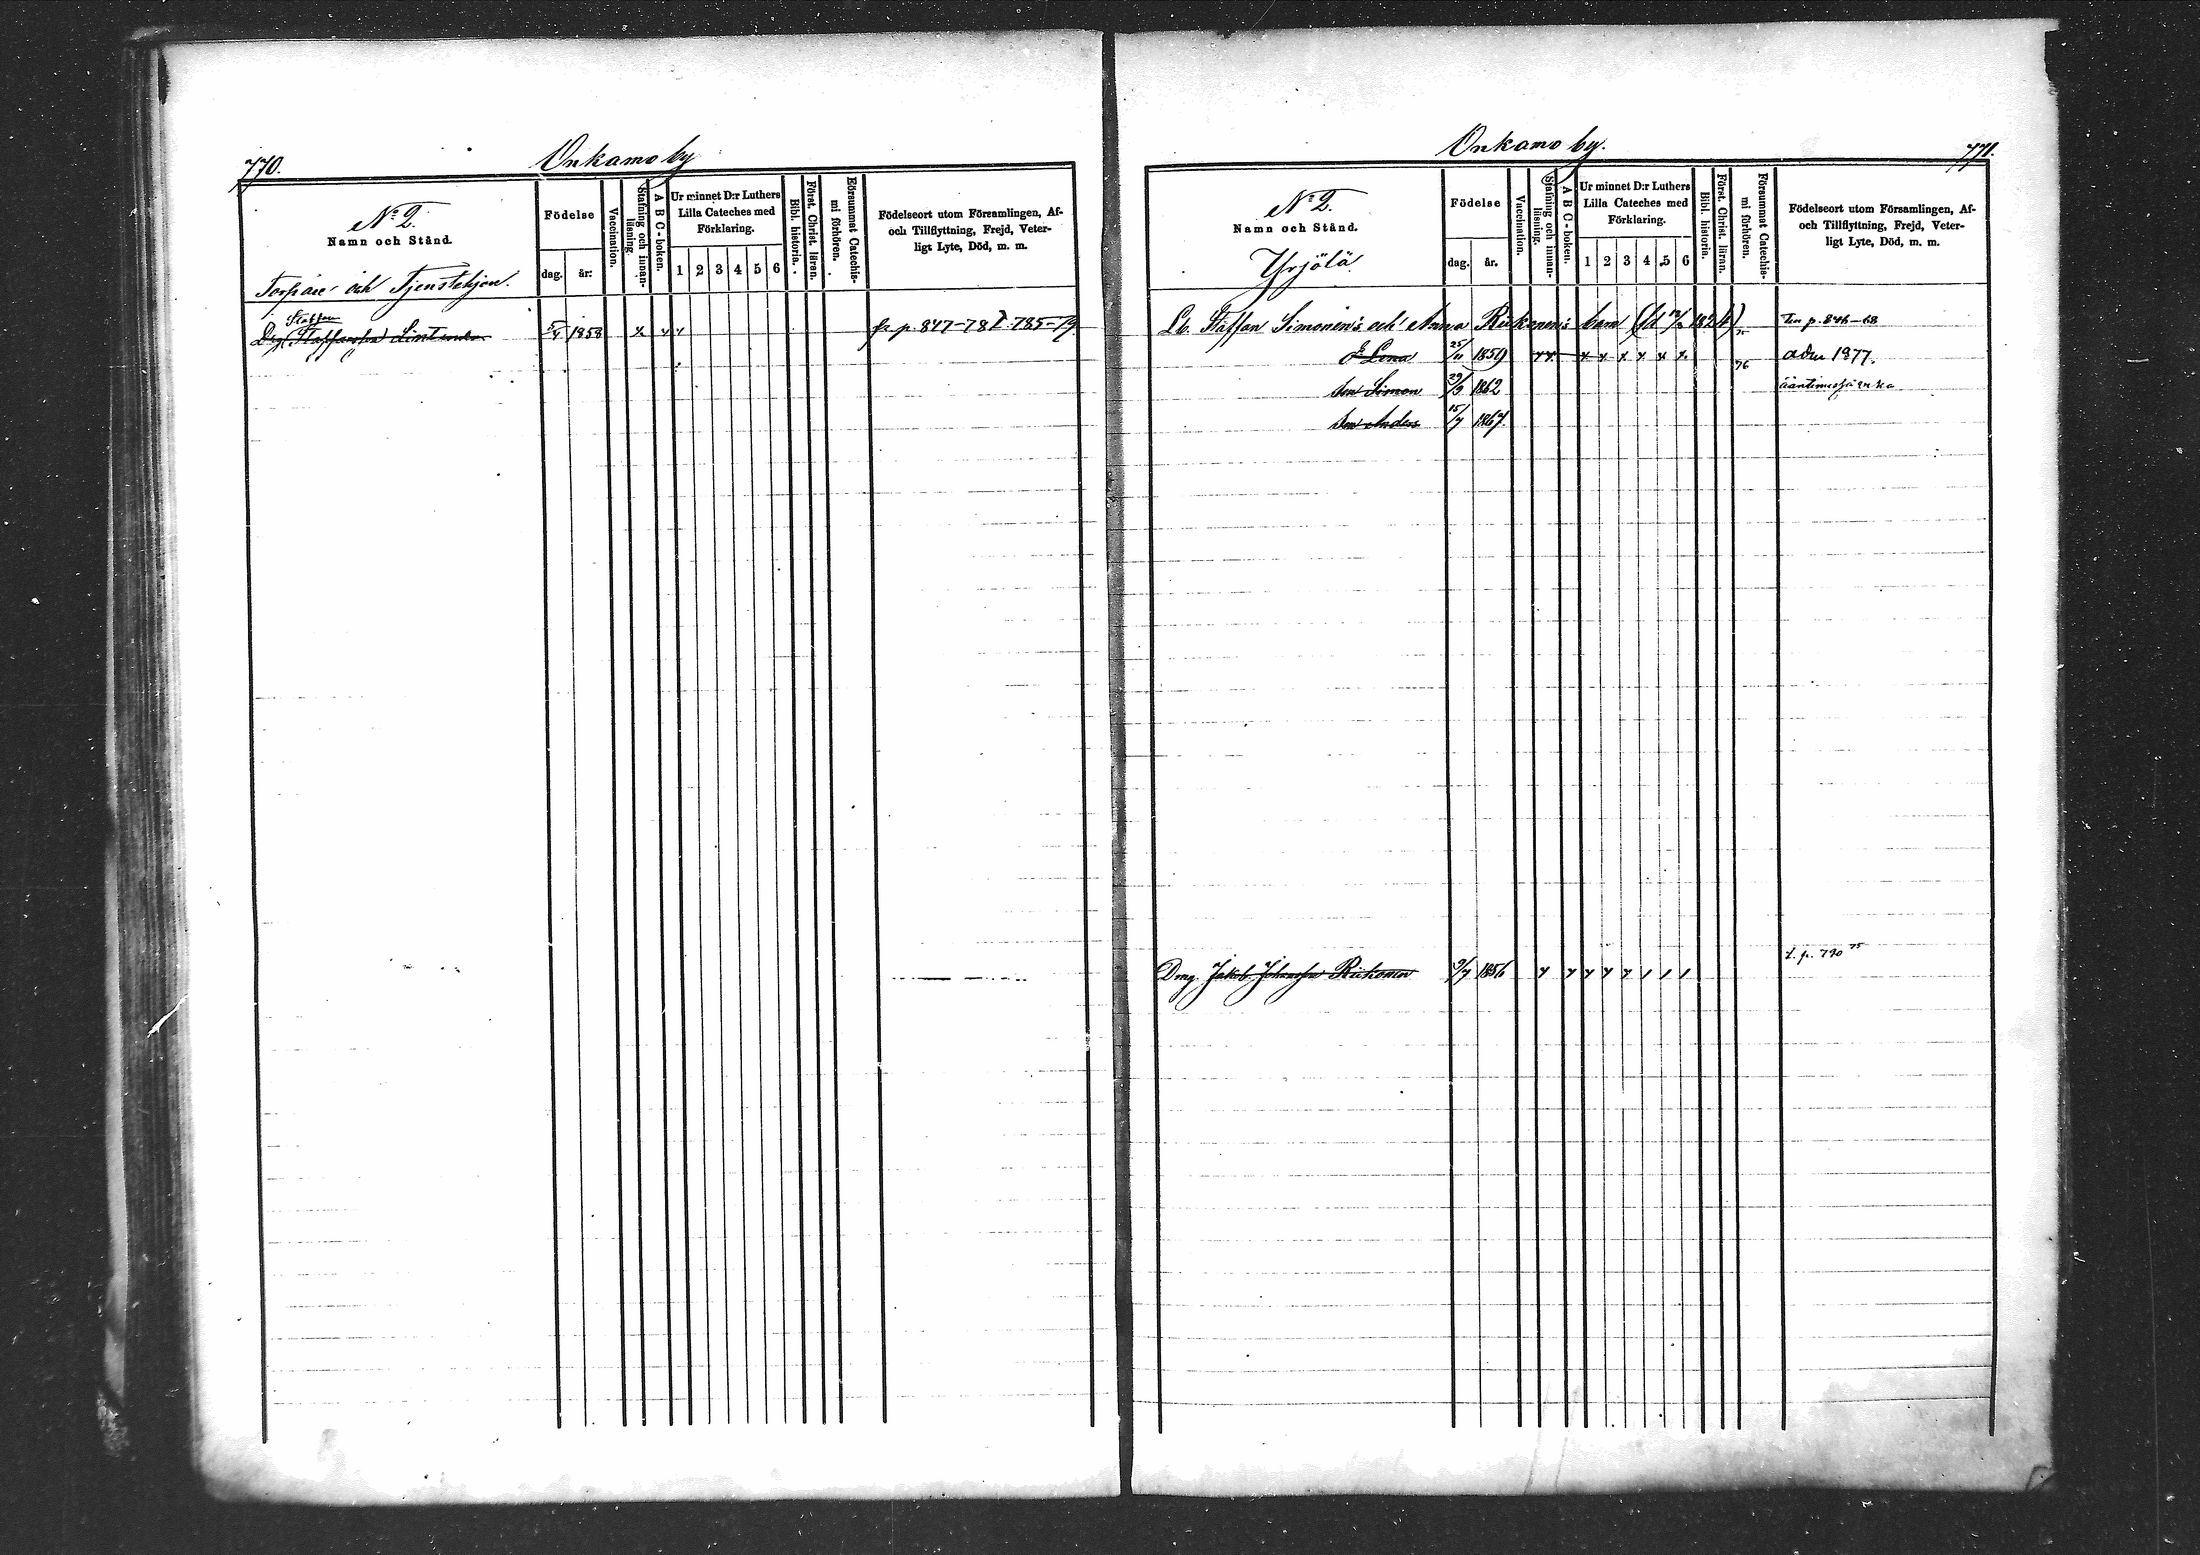 770.
Onkamo by
No 2.
Namn och Stånd.
Födelse
dag.
år.
Vaccination.
Stafning och innan-
läsning.
A B C-boken.
Ur minnet D:r Luthers
Lilla Cateches med
Förklaring.
1 2 3 4 5 6
Bibl. historia.
Först. Christ. läran.
Försummat Catechis-
mi förhören.
Födelseort utom Församlingen, Af-
och Tillflyttning, Frejd, Veter-
ligt Lyte, Död, m. m.
Torpare och Tjenstehjon.
Staffan
Drg (Staffansson) 5/4 1858 x x x fr p. 847-78 785-79
Onkamo by.
771.
No 2.
Namn och Stånd.
Yrjölä
Födelse
dag.
år.
Vaccination.
Stafning och innan-
läsning.
A B C-boken.
Ur minnet D:r Luthers
Lilla Cateches med
Förklaring.
1 2 3 4 5 6
Bibl. historia.
Först. Christ. läran.
Försummat Catechis-
mi förhören.
Födelseort utom Församlingen, Af-
och Tillflyttning, Frejd, Veter-
ligt Lyte, Död, m. m.
Lb. Staffan Simonen's och Anna Riikonen's barn p. 846-68
Lena 25/11 1859 x x x x x x x x 76 adm 1877.
Son Simon 29/9 1862
Son Anders 15/7 1867
t. p. 790 75
Drng. Jakob Johansson Riikonen 9/7 1856 x x x x x / / /